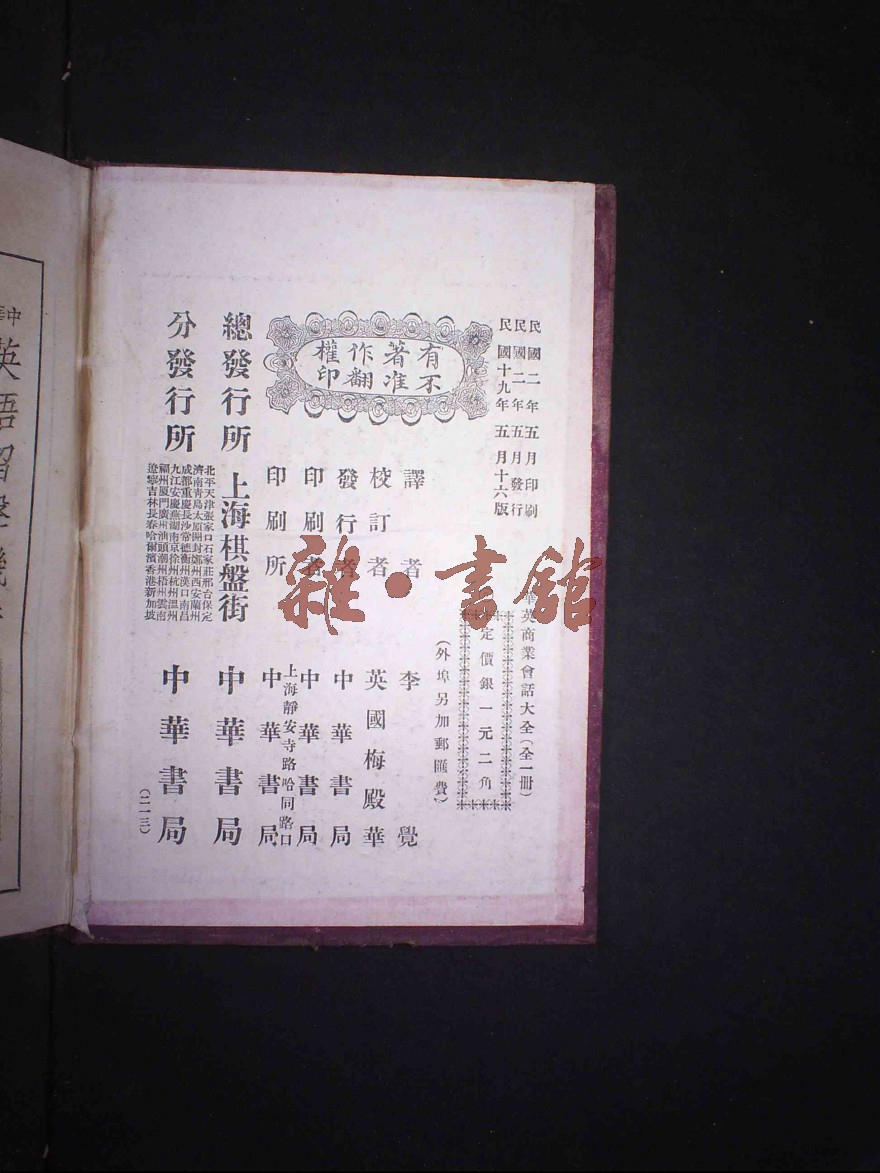 民國二年五月印刷
民國二年五月發行
民國十九年五月十六版
華英商業會話大全（全一冊）
定價銀一元二角
（外埠另加郵匯費）
有不
著准
作翻
權印
譯者 李覺
校訂者 英國梅殿華
發行者 中華書局
印刷者 中華書局
印刷所 上海靜安寺路哈同路口
中華書局
總發行所 上海棋盤街 中華書局
分發行所
北平天津張家口石家莊邢台保定
濟南青島太原開封鄭州西安蘭州
成都重慶長沙常德衡州漢口南昌
九江安慶蕪湖南京徐州杭州溫州
福州厦門廣州汕頭潮州梧州雲南
遼寧吉林長春哈爾濱香港新加坡
中華書局
（二一三）
雜·書館
中華
英語留聲機